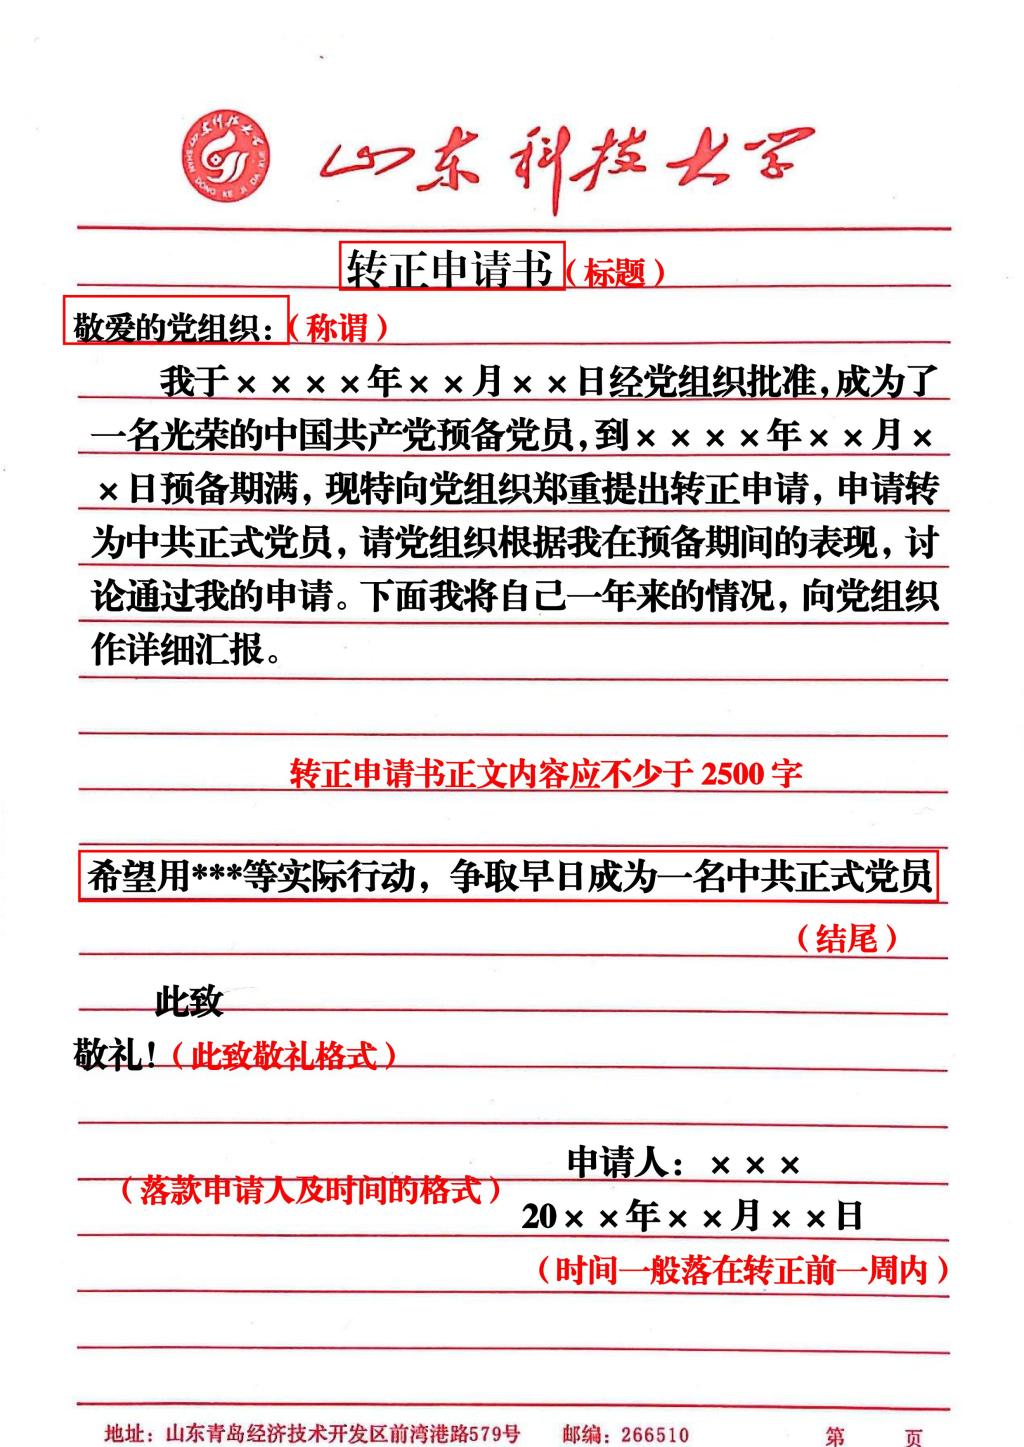 山东科技大学
SHAN DONG KE JI DA XUE
山东科技大学
转正申请书（标题）
敬爱的党组织：（称谓）
我于××××年××月××日经党组织批准，成为了
一名光荣的中国共产党预备党员，到××××年××月×
×日预备期满，现特向党组织郑重提出转正申请，申请转
为中共正式党员，请党组织根据我在预备期间的表现，讨
论通过我的申请。下面我将自己一年来的情况，向党组织
作详细汇报。
转正申请书正文内容应不少于 2500 字
希望用***等实际行动，争取早日成为一名中共正式党员
（结尾）
此致
敬礼！（此致敬礼格式）
申请人：×××
（落款申请人及时间的格式）
20××年××月××日
（时间一般落在转正前一周内）
地址：山东青岛经济技术开发区前湾港路579号 邮编：266510 第 页